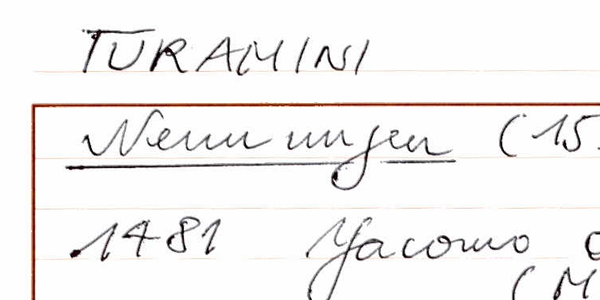 TURAMINI
Nennungen (15
1481 Yacomo
(M